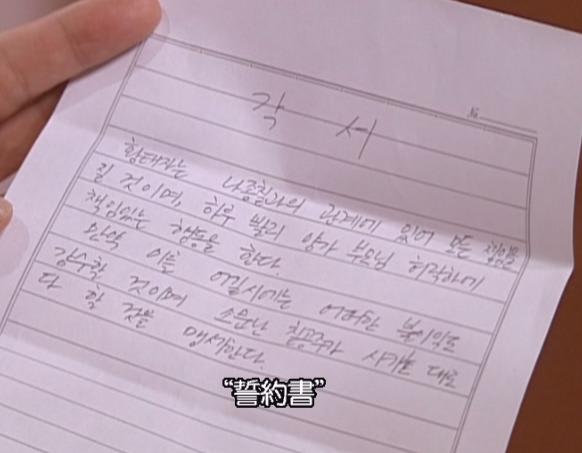 No.
각 서
황태자는 나종칠과의 관계에 있어 모든 책임을
질 것이며, 하루 빨리 양가 부모님 허락하에
책임있는 행동을 한다.
만약 이를 어길시에는 어떠한 불이익도
감수할 것이며 소문난 칠공주가 시키는 대로
다 할 것을 맹세한다.
“誓約書”